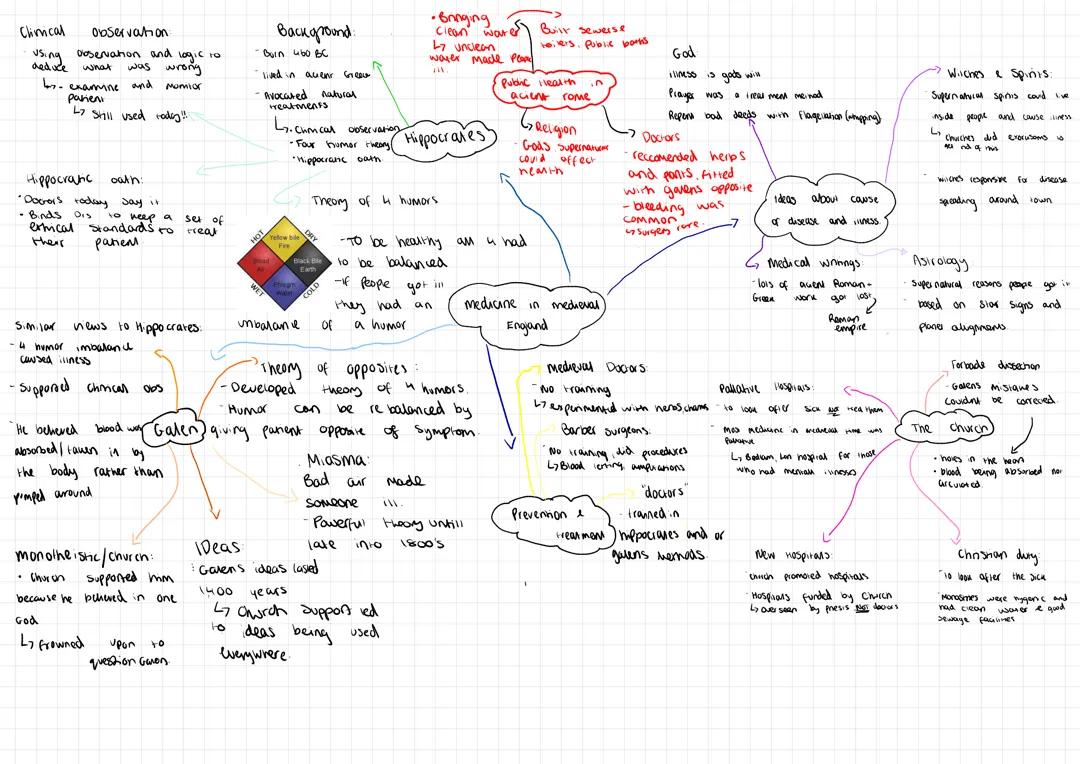 Clinical observation:
- using observation and logic to
deduce what was wrong
↳ - examine and monitor
patient
↳ still used today!!
Hippocratic oath:
- Doctors today say it
- Binds Drs to keep a set of
ethical standards to treat
their patient
Background:
- Born 460 BC
- lived in acient Greece
- Avocated natural
treatments
↳ • Clinical observation
• Four humor theory
• Hippocratic oath
Hippocrates
Theory of 4 humors
HOT
DRY
WET
COLD
Yellow bile
Fire
Blood
Air
Black Bile
Earth
Phlegm
Water
- To be healthy all 4 had
to be balanced
- If people got ill
they had an
imbalance of a humor
• Bringing
clean water
↳ unclean
water made people
ill.
Built sewerse
toilers, Public baths
Public Health in
acient rome
Religion
- Gods supernatural
could effect
health
Doctors
- reccomended herbs
and pants, fitted
with galens opposite
- bleeding was
common
↳ surgery rare.
God
illness is gods will
Prayer was a treatment method
Repent bad deeds with Flagellation (whipping)
Witches & Spirits:
- Supernatural spirits could live
inside people and cause illness
↳ churches did exorcisms to
get rid of this
- witches responsible for disease
spreading around town
Ideas about cause
of disease and illness.
Medical writings:
- lots of acient Roman +
Greek work got lost
Roman
empire
Astrology
- Supernatural reasons people got ill
- based on Star signs and
planet alignments.
Medicine in medieval
England
Similar views to Hippocrates:
- 4 humor imbalance
caused illness
- Supported clinical obs
- He believed blood was
absorbed/taken in by
the body rather than
pumped around
Galen
Theory of opposites:
- Developed theory of 4 humors.
- Humor can be rebalanced by
giving patient opposite of symptom.
Miasma:
Bad air made
someone ill.
- Powerful theory untill
late into 1800's
monotheistic/church:
• Church supported him
because he believed in one
God
↳ frowned upon to
question Galen.
IDeas:
: Galens ideas lasted
1400 years
↳ Church support led
to ideas being used
everywhere.
Medieval Doctors:
- No training
↳ experimented with herbs, charms
Barber surgeons:
- No training, did procedures
↳ Blood letting, amputations
"doctors"
- trained in
hippocrates and or
galens methods.
Prevention &
treatment
Palliative Hospitals:
- to look after sick NOT treat them
- Most medicine in medieval time was
Palliative
↳ Bedlam, Lon hospital for those
who had mental illnesses
Forbade dissection
- Galens mistakes
couldnt be corrected.
• holes in the heart
• blood being absorbed not
circulated.
The Church
New Hospitals:
church promoted hospitals
Hospitals funded by Church
↳ overseen by priests NOT doctors
Christian duty:
- To look after the sick
- Monasteries were hygenic and
had clean water & good
sewage facilities